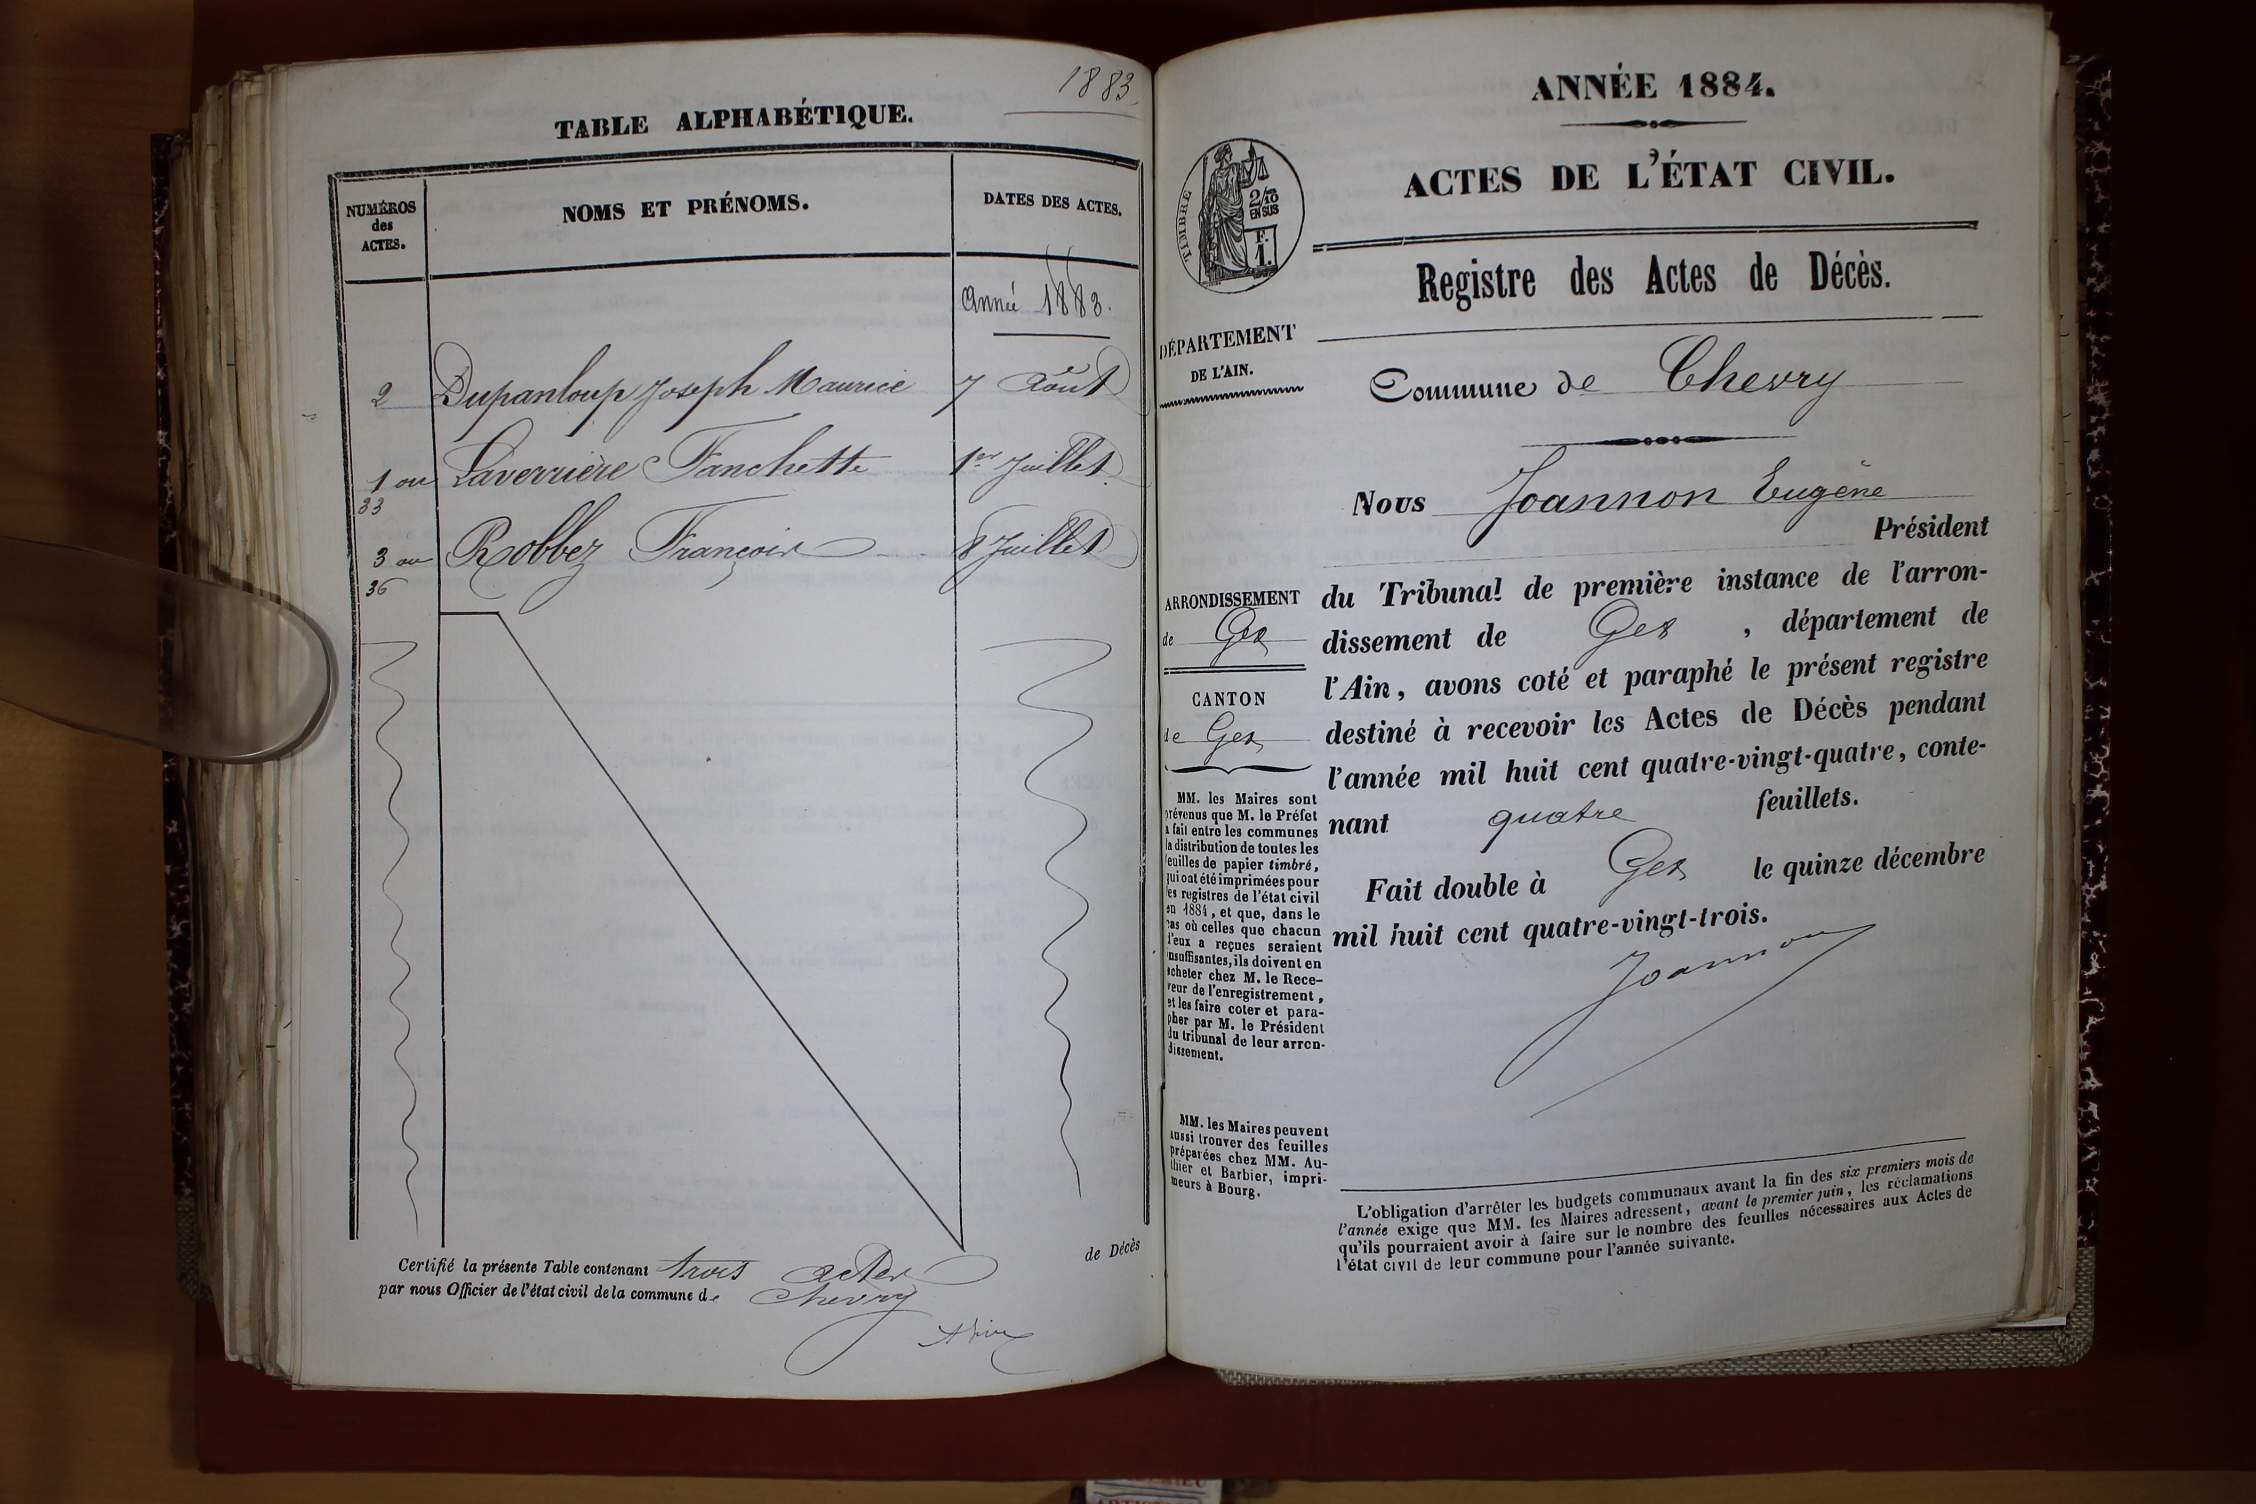 1883
TABLE ALPHABÉTIQUE.
NUMÉROS
des
ACTES.
NOMS ET PRÉNOMS.
DATES DES ACTES.
Année 1883.
2 Dupanloup Joseph Maurice 7 Août
1 ou Laverrière Fanchette 1er Juillet
33
3 ou Robbez François 8 Juillet
36
Certifié la présente Table contenant trois actes de Décès
par nous Officier de l'état civil de la commune de Chevry
ANNÉE 1884.
ACTES DE L'ÉTAT CIVIL.
TIMBRE
2/10
EN SUS
F.
1.
Registre des Actes de Décès.
DÉPARTEMENT
DE L'AIN.
Commune de Chevry
Nous Joannon Eugène
Président
ARRONDISSEMENT
de Gex
CANTON
de Gex
du Tribunal de première instance de l'arron-
dissement de Gex, département de
l'Ain, avons coté et paraphé le présent registre
destiné à recevoir les Actes de Décès pendant
l'année mil huit cent quatre-vingt-quatre, conte-
nant quatre feuillets.
Fait double à Gex le quinze décembre
mil huit cent quatre-vingt-trois.
Joannon
MM. les Maires sont
prévenus que M. le Préfet
a fait entre les communes
la distribution de toutes les
feuilles de papier timbré,
qui ont été imprimées pour
les registres de l'état civil
en 1884, et que, dans le
cas où celles que chacun
d'eux a reçues seraient
insuffisantes, ils doivent en
acheter chez M. le Rece-
veur de l'enregistrement,
et les faire coter et para-
pher par M. le Président
du tribunal de leur arron-
dissement.
MM. les Maires peuvent
aussi trouver des feuilles
préparées chez MM. Au-
thier et Barbier, impri-
meurs à Bourg.
L'obligation d'arrêter les budgets communaux avant la fin des six premiers mois de
l'année exige que MM. les Maires adressent, avant le premier juin, les réclamations
qu'ils pourraient avoir à faire sur le nombre des feuilles nécessaires aux Actes de
l'état civil de leur commune pour l'année suivante.